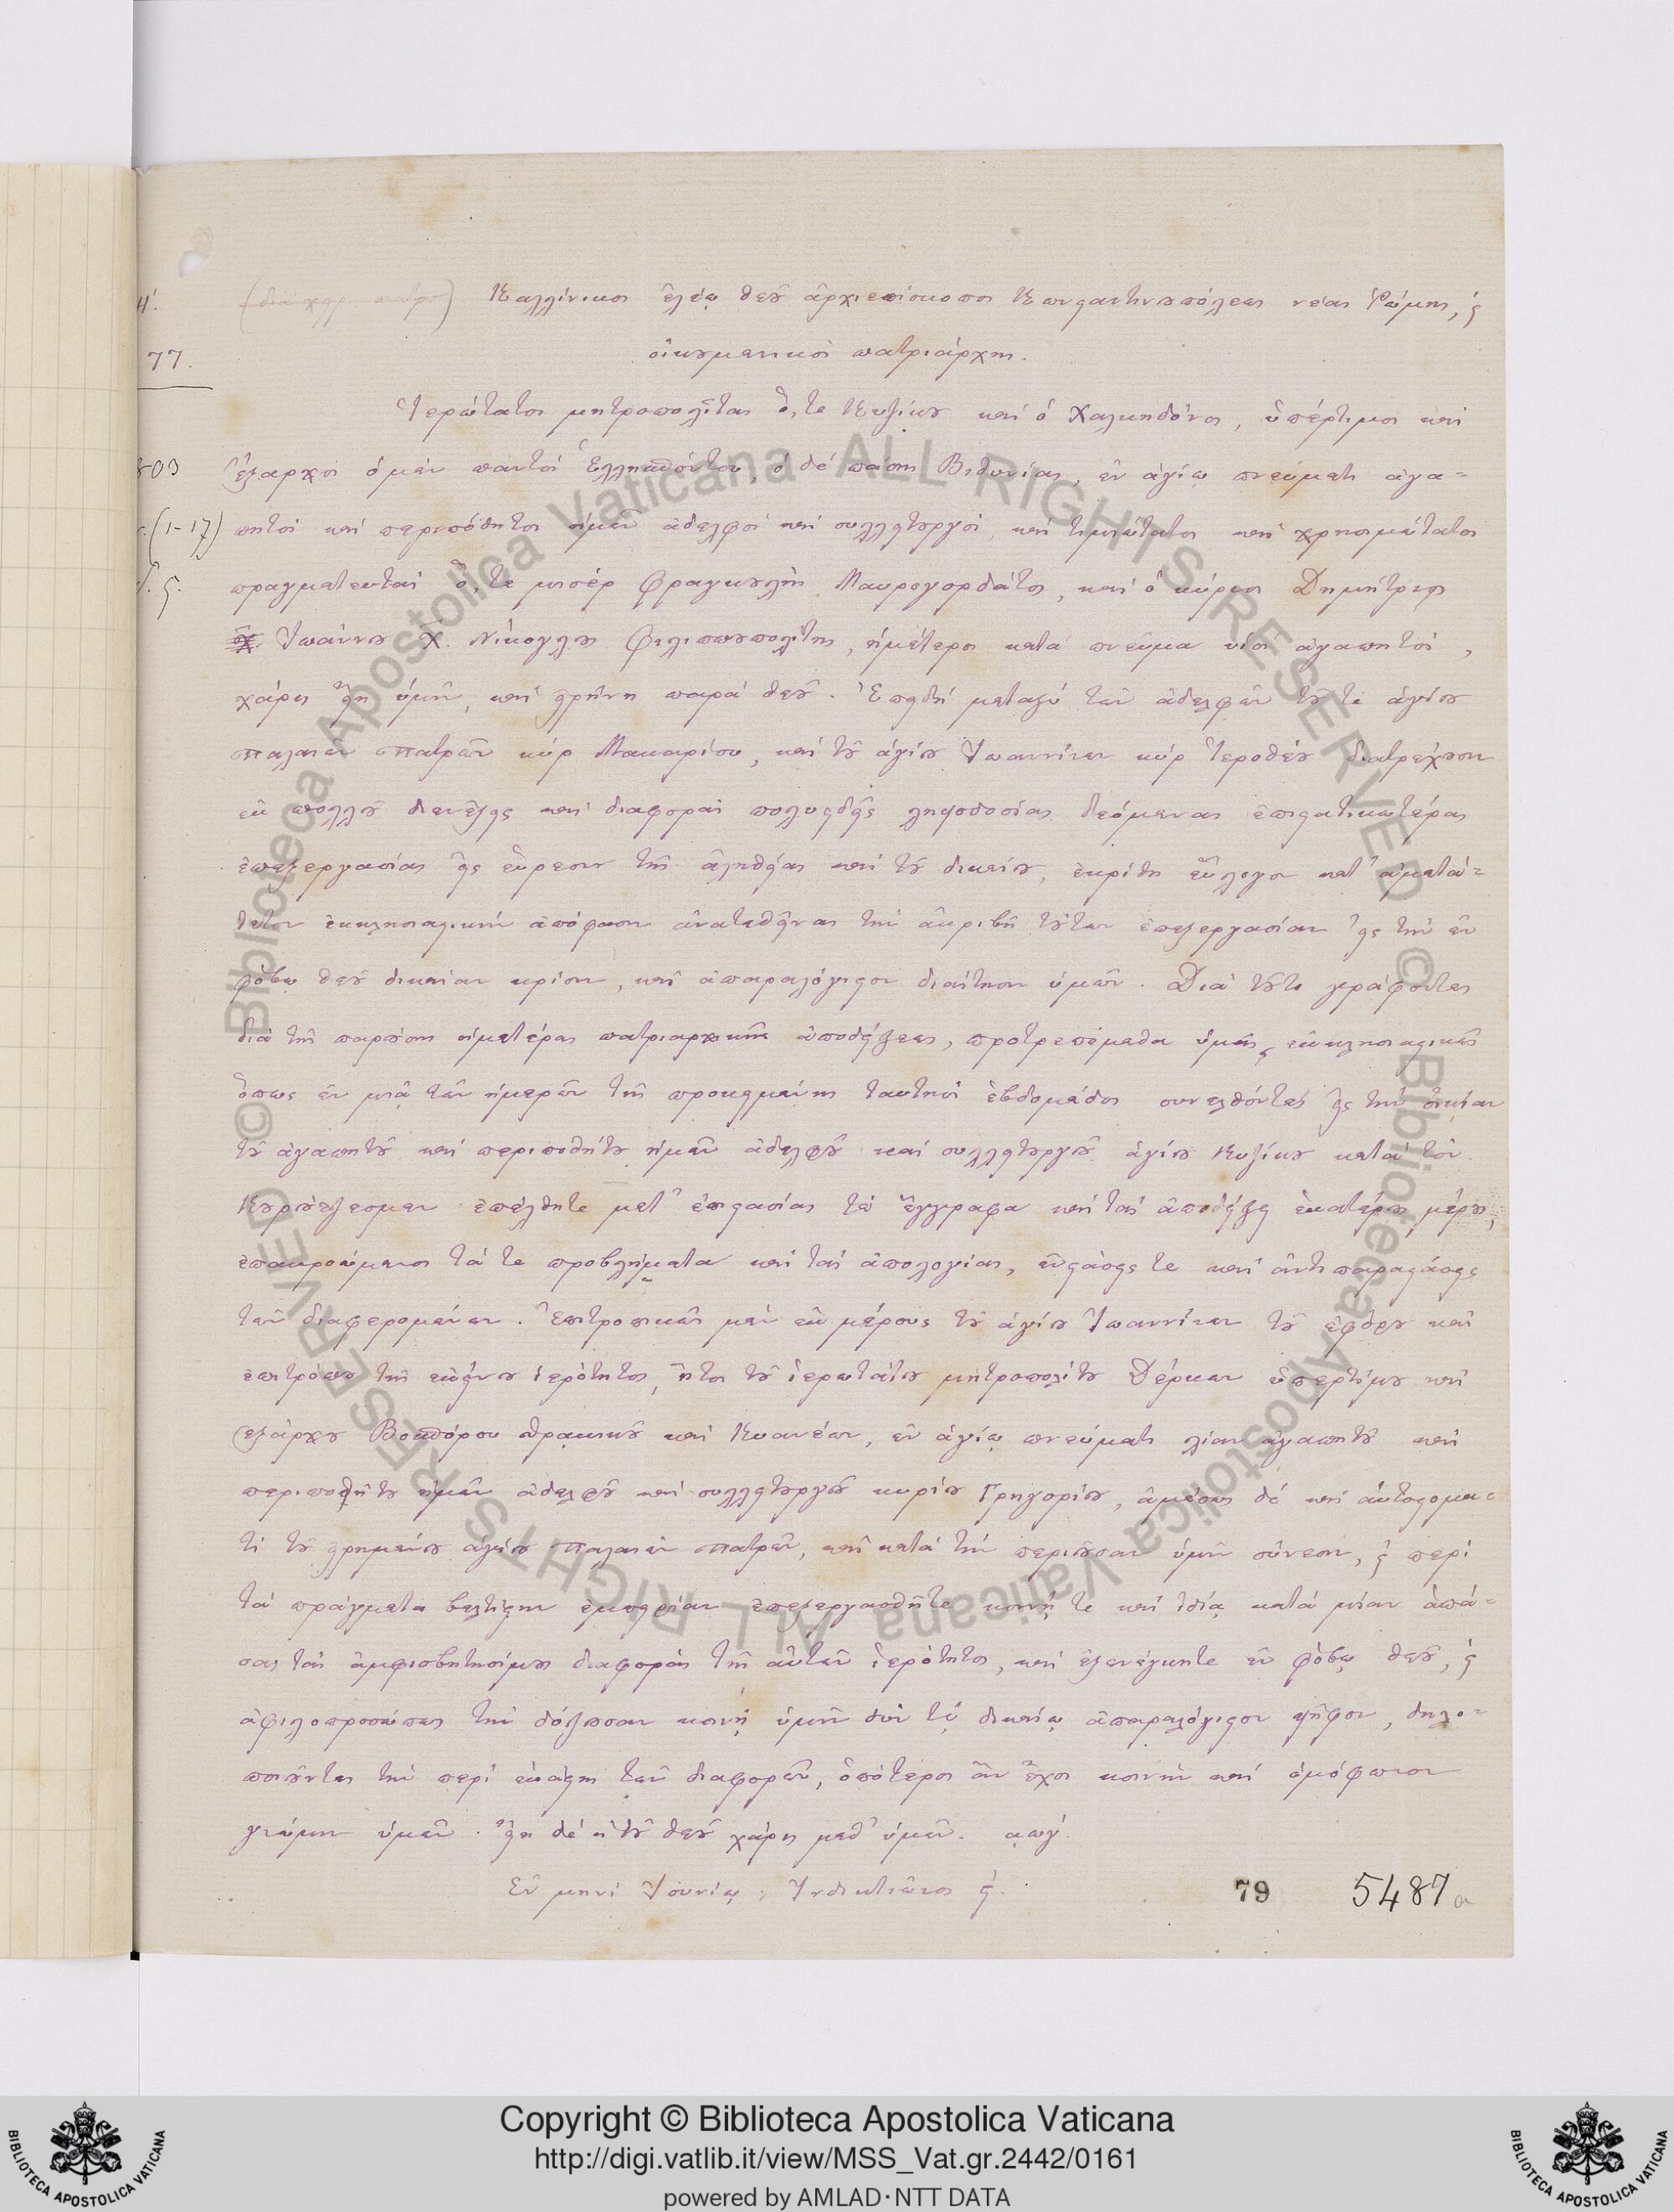 Η΄. (διὰ χειρ. πατρ.) Καλλίνικος ἐλέῳ θεοῦ ἀρχιεπίσκοπος Κωνσταντινουπόλεως νέας Ῥώμης, ϛ
77. οἰκουμενικὸς πατριάρχης.
Ἱερώτατοι μητροπολῖται ὅ, τε Κυζίκου καὶ ὁ Χαλκηδόνος, ὑπέρτιμοι καὶ
803 ἔξαρχοι ὁ μὲν παντὸς Ἑλλησπόντου, ὁ δὲ πάσης Βιθυνίας, ἐν ἁγίῳ πνεύματι ἀγα-
(1-17) πητοὶ καὶ περιπόθητοι ἡμῶν ἀδελφοὶ καὶ συλλειτουργοί, καὶ τιμιώτατοι καὶ χρησιμώτατοι
πραγματευταὶ ὅ, τε μισὲρ Φραγκουλῆς Μαυρογορδάτος, καὶ ὁ κύριος Δημήτριος
Ἰωάννου Χ. Νίκογλους Φιλιππουπολίτης, ἡμέτεροι κατὰ πνεῦμα υἱοὶ ἀγαπητοί,
χάρις εἴη ὑμῖν, καὶ εἰρήνη παρὰ θεοῦ. Ἐπειδὴ μεταξὺ τῶν ἀδελφῶν τοῦ τε ἁγίου
Παλαιῶν Πατρῶν κὺρ Μακαρίου, καὶ τοῦ ἁγίου Ἰωαννίνων κὺρ Ἱεροθέου διατρέχουσιν
ἐκ πολλοῦ διενέξεις καὶ διαφοραὶ πολυειδεῖς ληψοδοσίας δεόμεναι ἐπιστατικωτέρας
ἐπεξεργασίας εἰς εὕρεσιν τῆς ἀληθείας καὶ τοῦ δικαίου, ἐκρίθη εὔλογον κατ' ἀμετά-
θετον ἐκκλησιαστικὴν ἀπόφασιν ἀνατεθῆναι τὴν ἀκριβῆ τούτων ἐπεξεργασίαν εἰς τὴν ἐν
φόβῳ θεοῦ δικαίαν κρίσιν, καὶ ἀπαραλόγιστον διαίτησιν ὑμῶν. Διὰ τοῦτο γράφοντες
διὰ τῆς παρούσης ἡμετέρας πατριαρχικῆς ἀποδείξεως, προτρεπόμεθα ὑμᾶς ἐκκλησιαστικῶς
ὅπως ἐν μιᾷ τῶν ἡμερῶν τῆς προκειμένης ταυτησὶ ἑβδομάδος συνελθόντες εἰς τὴν οἰκίαν
τοῦ ἀγαπητοῦ καὶ περιποθήτου ἡμῶν ἀδελφοῦ καὶ συλλειτουργοῦ ἁγίου Κυζίκου κατὰ τὸν
Κουρούτζεσμεν ἐπέλθητε μετ' ἐπιστασίας τὰ ἔγγραφα καὶ τὰς ἀποδείξεις ἑκατέρου μέρους,
ἐπακροώμενοι τά τε προβλήματα καὶ τὰς ἀπολογίας, ἐνστάσεις τε καὶ ἀντιπαραστάσεις
τῶν διαφερομένων. Ἐπιτροπικῶς μὲν ἐκ μέρους τοῦ ἁγίου Ἰωαννίνων τοῦ ἐφόρου καὶ
ἐπιτρόπου τῆς ἐκείνου ἱερότητος, ἤτοι τοῦ ἱερωτάτου μητροπολίτου Δέρκων ὑπερτίμου καὶ
ἐξάρχου Βοσπόρου Θρακικοῦ καὶ Κυανέων, ἐν ἁγίῳ πνεύματι λίαν ἀγαπητοῦ καὶ
περιποθήτου ἡμῶν ἀδελφοῦ καὶ συλλειτουργοῦ κυρίου Γρηγορίου, ἀμέσως δὲ καὶ αὐτοστομα-
τὶ τοῦ εἰρημένου ἁγίου Παλαιῶν Πατρῶν, καὶ κατὰ τὴν περιοῦσαν ὑμῖν σύνεσιν, ϛ περὶ
τὰ πράγματα βελτίστην ἐμπειρίαν ἐπεξεργασθῆτε κοινῇ τε καὶ ἰδίᾳ κατὰ μίαν ἁπά-
σας τὰς ἀμφισβητησίμους διαφορὰς τῆς αὐτῶν ἱερότητος, καὶ ἐξενέγκητε ἐν φόβῳ θεοῦ, ϛ
ἀφιλοπροσώπως τὴν δόξασαν κοινῇ ὑμῖν σὺν τῷ δικαίῳ ἀπαραλόγιστον ψῆφον, δηλο-
ποιοῦντες τὴν περὶ ἑκάστης τῶν διαφορῶν, ὁπότερος ἂν ἔχοι κοινὴν καὶ ὁμόφωνον
γνώμην ὑμῶν. εἴη δὲ ἡ τοῦ θεοῦ χάρις μεθ' ὑμῶν. αωγ΄.
Ἐν μηνὶ Ἰουνίῳ; Ἰνδικτιῶνος ϛ΄.
79 5487a
Copyright © Biblioteca Apostolica Vaticana
http://digi.vatlib.it/view/MSS_Vat.gr.2442/0161
powered by AMLAD · NTT DATA